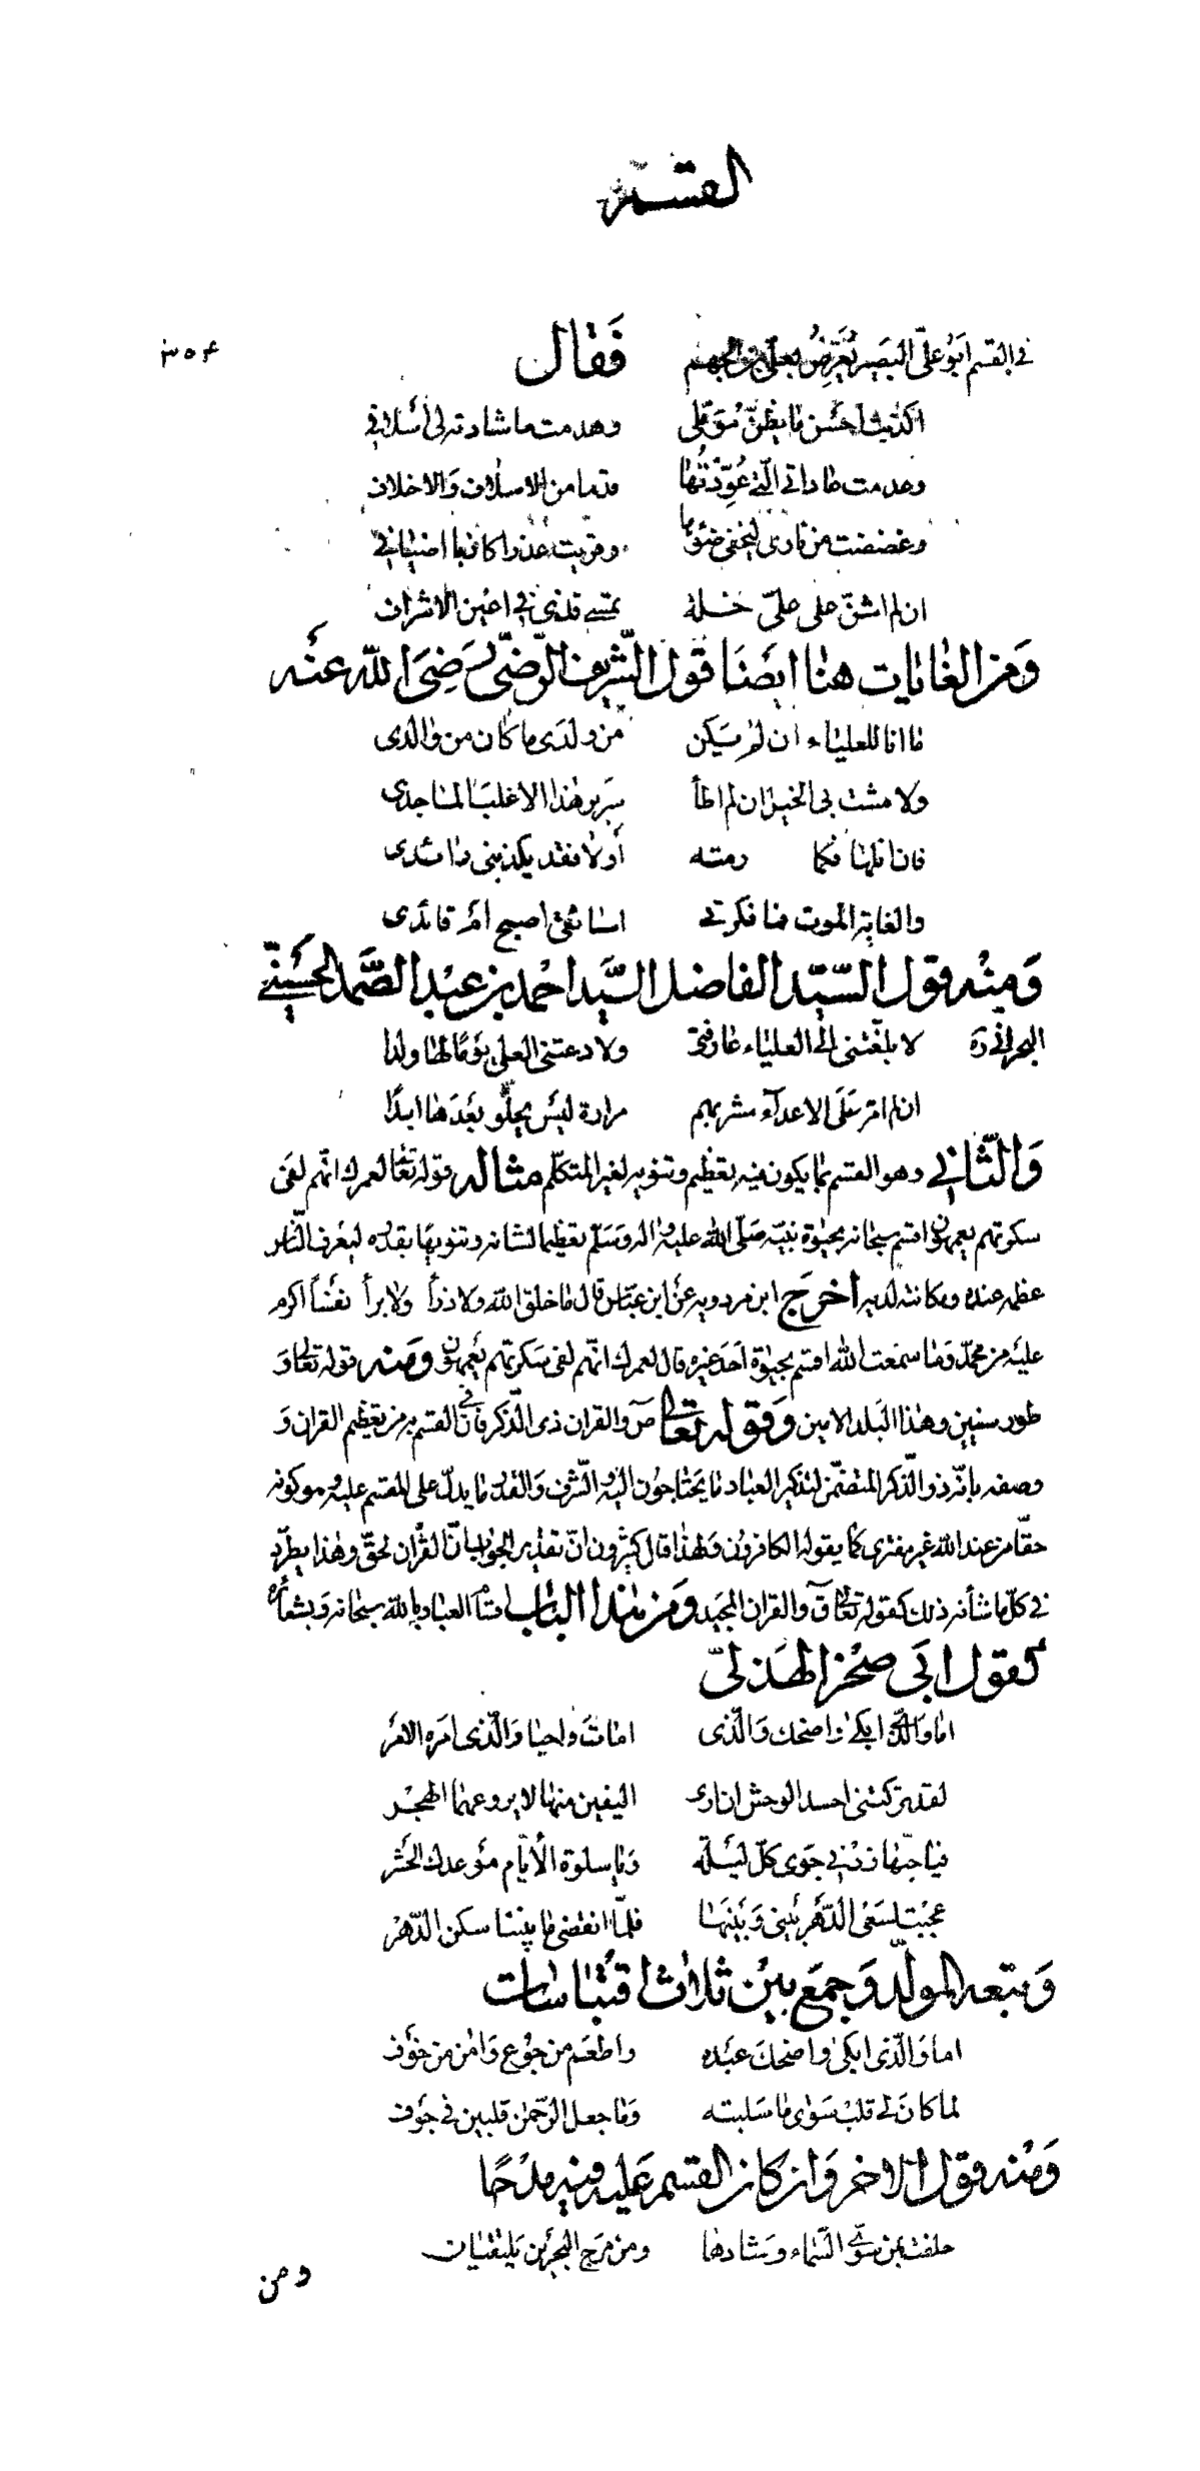 القسم
٣٥٤
في القسم ابو علي البصير يعرض بعلي بن الجهم فقال
اكذبت احسن ما يظن مؤملي وهدمت ما شادته لي اسلافي
وعدمت عاداتي التي عودتها قدما من الاسلاف والاخلاف
وغضضت من ناري ليخفى ضوؤها وقريت عذرا كاذبا اضيافي
ان لم اشن على علي خلة تمسي قذى في اعين الاشراف
ومن الغايات هنا ايضا قول الشريف الرضي رضي الله عنه
ما انا للعلياء ان لم يكن من ولدي ما كان من والدي
ولا مشت بي الخيل ان لم اطأ سرير هذا الاغلب الماجدي
فان انلها فكما رمته أولا فقد يكذبني رائدي
والغاية الموت فما فكرتي اسائقي اصبح ام قائدي
ومنه قول السيد الفاضل السيد احمد بن عبد الصمد الحسيني
البحراني ره لا بلغتني الى العلياء عارفتي ولا دعتني العلى يوما لها ولدا
ان لم امر على الاعداء مشربهم مرارة ليس يحلو بعدها ابدا
والثاني وهو القسم بما يكون فيه تعظيم وتنويه لغير المتكلم مثاله قوله تعالى لعمرك انهم لفي
سكرتهم يعمهون اقسم سبحانه بحيوة نبيه صلى الله عليه واله وسلم تعظيما لشانه وتنويها بقدره ليعرف الناس
عظمه عنده ومكانته لديه أخرج ابن مردويه عن ابن عباس قال ما خلق الله ولا ذرأ ولا برأ نفسا اكرم
عليه من محمد وما سمعت الله اقسم بحيوة احد غيره قال لعمرك انهم لفي سكرتهم يعمهون ومنه قوله تعالى و
طور سنين وهذا البلد الامين وقوله تعالى ص والقران ذى الذكر فان في القسم به من تعظيم القران و
وصفه بانه ذو الذكر المتضمن لتذكير العباد ما يحتاجون اليه والشرف والقدر ما يدل على المقسم عليه وهو كونه
حقا من عند الله غير مفترى كما يقوله الكافرون ولهذا قال كثيرون ان تقدير الجواب ان القران لحق وهذا يطرد
في كل ما شأنه ذلك كقوله تعالى ق والقران المجيد ومن هذا الباب اقسام العباد بالله سبحانه وبشعائره
كقول ابي صخر الهذلي
اما والذي ابكى واضحك والذى امات واحيا والذى امره الامر
لقد تركتني احسد الوحش ان ارى اليفين منها لا يروعهما الهجر
فيا حبها زدني جوى كل ليلة ويا سلوة الأيام موعدك الحشر
عجبت لسعي الدهر بيني وبينها فلما انقضى ما بيننا سكن الدهر
وتبعه المولد وجمع بين ثلاث اقتباسات
اما والذى ابكى واضحك عبده واطعم من جوع وامن من خوف
لما كان لي قلب سوى ما سلبته وما جعل الرحمن قلبين في جوف
ومنه قول الاخر وان كان القسم عليه فيه مدحا
حلفت بمن سوى السماء وشادها ومن مرج البحرين يلتقيان
ومن